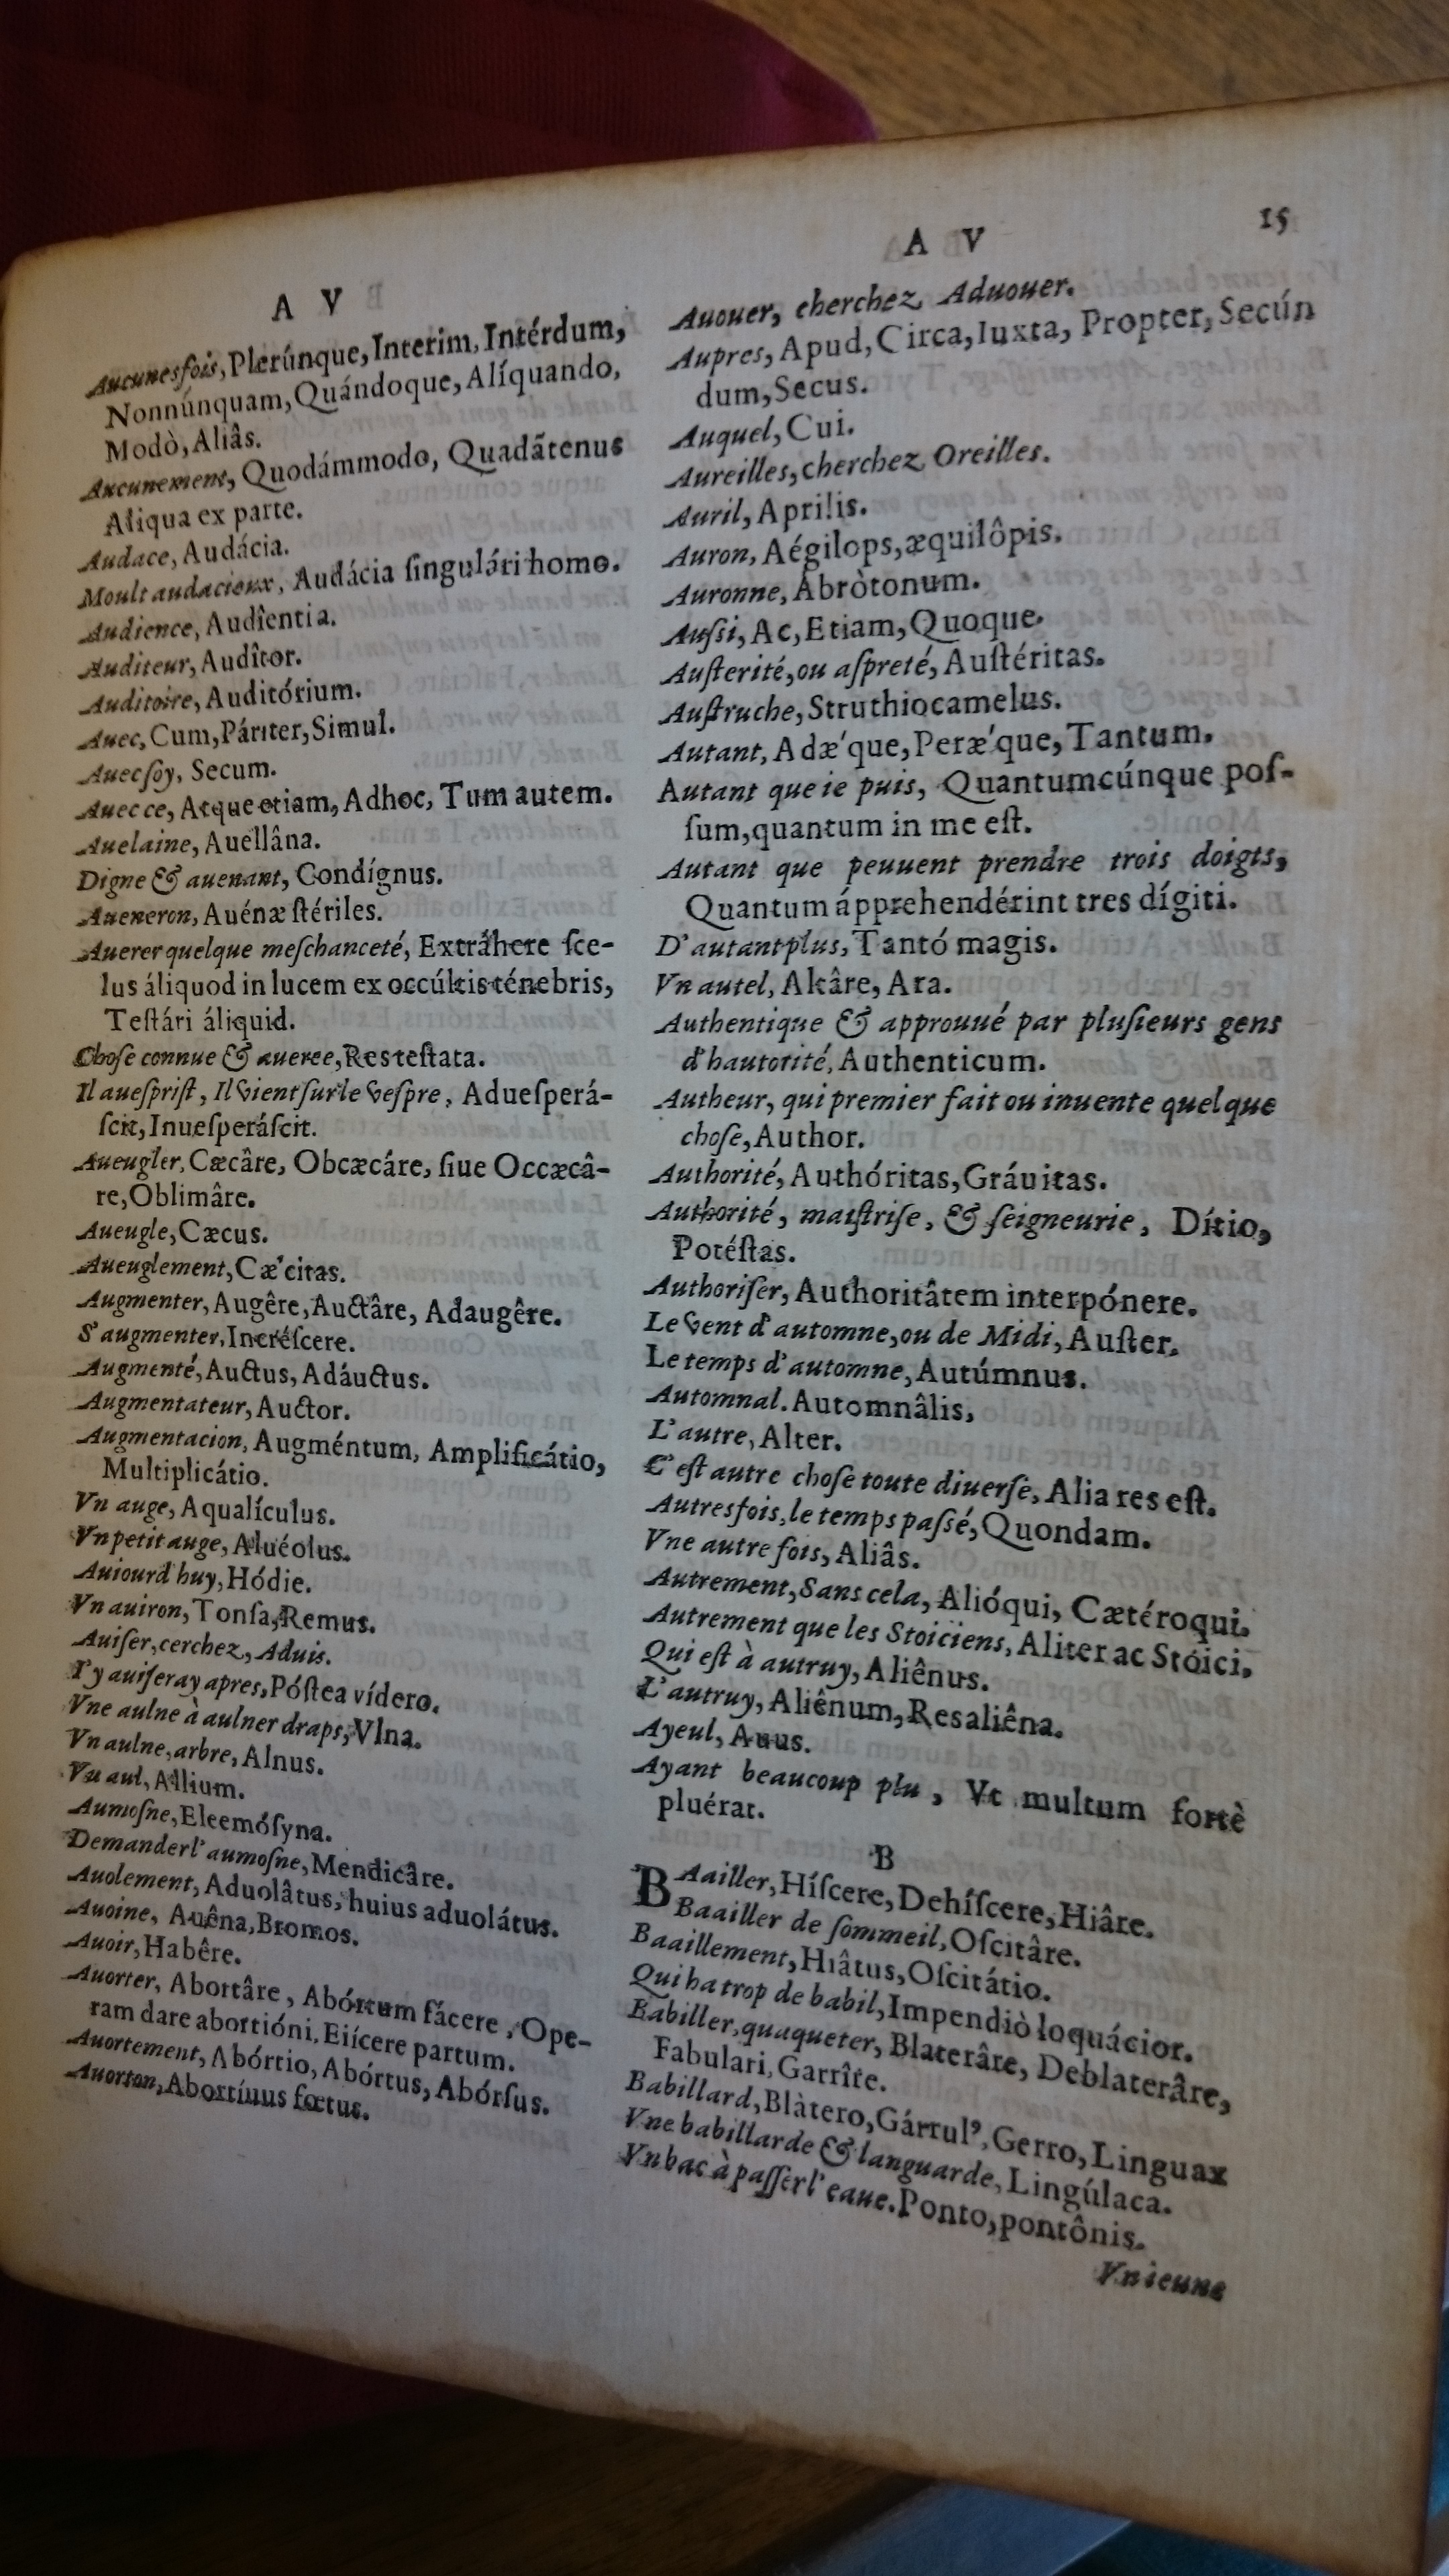 15
A V
Aucunesfois, Plerúnque, Interim, Intérdum,
Nonnúnquam, Quándoque, Alíquando,
Modò, Aliâs.
Aucunement, Quodámmodo, Quadãtenus
Aliqua ex parte.
Audace, Audácia.
Moult audacieux, Audácia ſingulári homo.
Audience, Audîentia.
Auditeur, Audîtor.
Auditoire, Auditórium.
Auec, Cum, Páriter, Simul.
Auec ſoy, Secum.
Auec ce, Atque etiam, Adhoc, Tum autem.
Auelaine, Auellâna.
Digne & auenant, Condígnus.
Aueneron, Auénæ ſtériles.
Auerer quelque meſchanceté, Extráhere ſce-
lus áliquod in lucem ex occúltis ténebris,
Teſtári áliquid.
Choſe connue & aueree, Res teſtata.
Il aueſpriſt, Il vient ſur le veſpre, Adueſperá-
ſcit, Inueſperáſcit.
Aueugler, Cæcâre, Obcæcáre, ſiue Occæcâ-
re, Oblimâre.
Aueugle, Cæcus.
Aueuglement, Cæ'citas.
Augmenter, Augêre, Auctâre, Adaugêre.
S'augmenter, Increſcere.
Augmenté, Auctus, Adáuctus.
Augmentateur, Auctor.
Augmentacion, Augméntum, Amplificátio,
Multiplicátio.
Vn auge, Aqualículus.
Vn petit auge, Aluéolus.
Auiourd huy, Hódie.
Vn auiron, Tonſa, Remus.
Auiſer, cerchez, Aduis.
I'y auiſeray apres, Póſtea vídero.
Vne aulne à aulner draps, Vlna.
Vn aulne, arbre, Alnus.
Vn aul, Allium.
Aumoſne, Eleemóſyna.
Demander l'aumoſne, Mendicâre.
Auolement, Aduolâtus, huius aduolátus.
Auoine, Auêna, Bromos.
Auoir, Habêre.
Auorter, Abortâre, Abórtum fácere, Ope-
ram dare abortióni, Eiícere partum.
Auortement, Abórtio, Abórtus, Abórſus.
Auorton, Abortíuus fœtus.
A V
Auouer, cherchez Aduouer.
Aupres, Apud, Circa, Iuxta, Propter, Secún
dum, Secus.
Auquel, Cui.
Aureilles, cherchez Oreilles.
Auril, Aprilis.
Auron, Aégilops, æquilôpis.
Auronne, Abròtonum.
Auſsi, Ac, Etiam, Quoque.
Auſterité, ou aſpreté, Auſtéritas.
Auſtruche, Struthiocamelus.
Autant, Adæ'que, Peræ'que, Tantum.
Autant que ie puis, Quantumcúnque poſ-
ſum, quantum in me eſt.
Autant que peuuent prendre trois doigts,
Quantum ápprehendérint tres dígiti.
D'autant plus, Tantó magis.
Vn autel, Altâre, Ara.
Authentique & approuué par pluſieurs gens
d'hautorité, Authenticum.
Autheur, qui premier fait ou inuente quelque
choſe, Author.
Authorité, Authóritas, Gráuitas.
Authorité, maiſtriſe, & ſeigneurie, Dítio,
Potéſtas.
Authoriſer, Authoritâtem interpónere.
Le vent d'automne, ou de Midi, Auſter.
Le temps d'automne, Autúmnus.
Automnal. Automnâlis,
L'autre, Alter.
C'eſt autre choſe toute diuerſe, Alia res eſt.
Autresfois, le temps paſsé, Quondam.
Vne autre fois, Aliâs.
Autrement, Sans cela, Alióqui, Cætéroqui.
Autrement que les Stoiciens, Aliter ac Stóici.
Qui eſt à autruy, Aliênus.
L'autruy, Aliênum, Res aliêna.
Ayeul, Auus.
Ayant beaucoup plu, Vt multum fortè
pluérat.
B
BAailler, Híſcere, Dehíſcere, Hiâre.
Baailler de ſommeil, Oſcitâre.
Baaillement, Hiâtus, Oſcitátio.
Qui ha trop de babil, Impendiò loquácior.
Babiller, quaqueter, Blaterâre, Deblaterâre,
Fabulari, Garrîre.
Babillard, Blàtero, Gárrulꝰ, Gerro, Linguax
Vne babillarde & languarde, Lingúlaca.
Vn bac à paſſer l'eaue. Ponto, pontônis.
Vn ieune